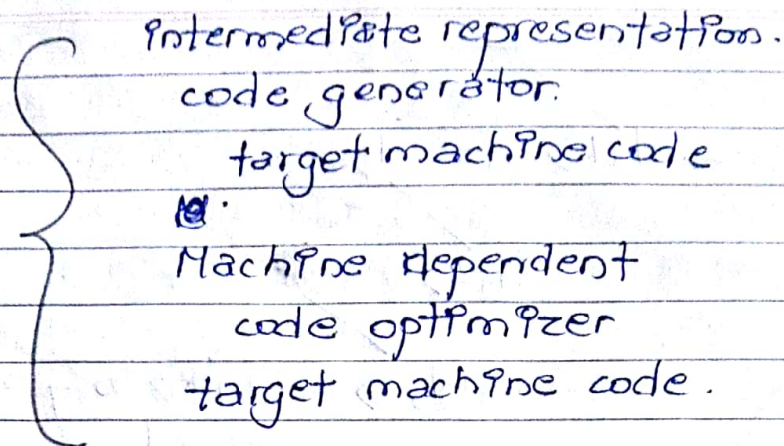 intermediate representation.
code generator.
target machine code
Machine dependent
code optimizer
target machine code.